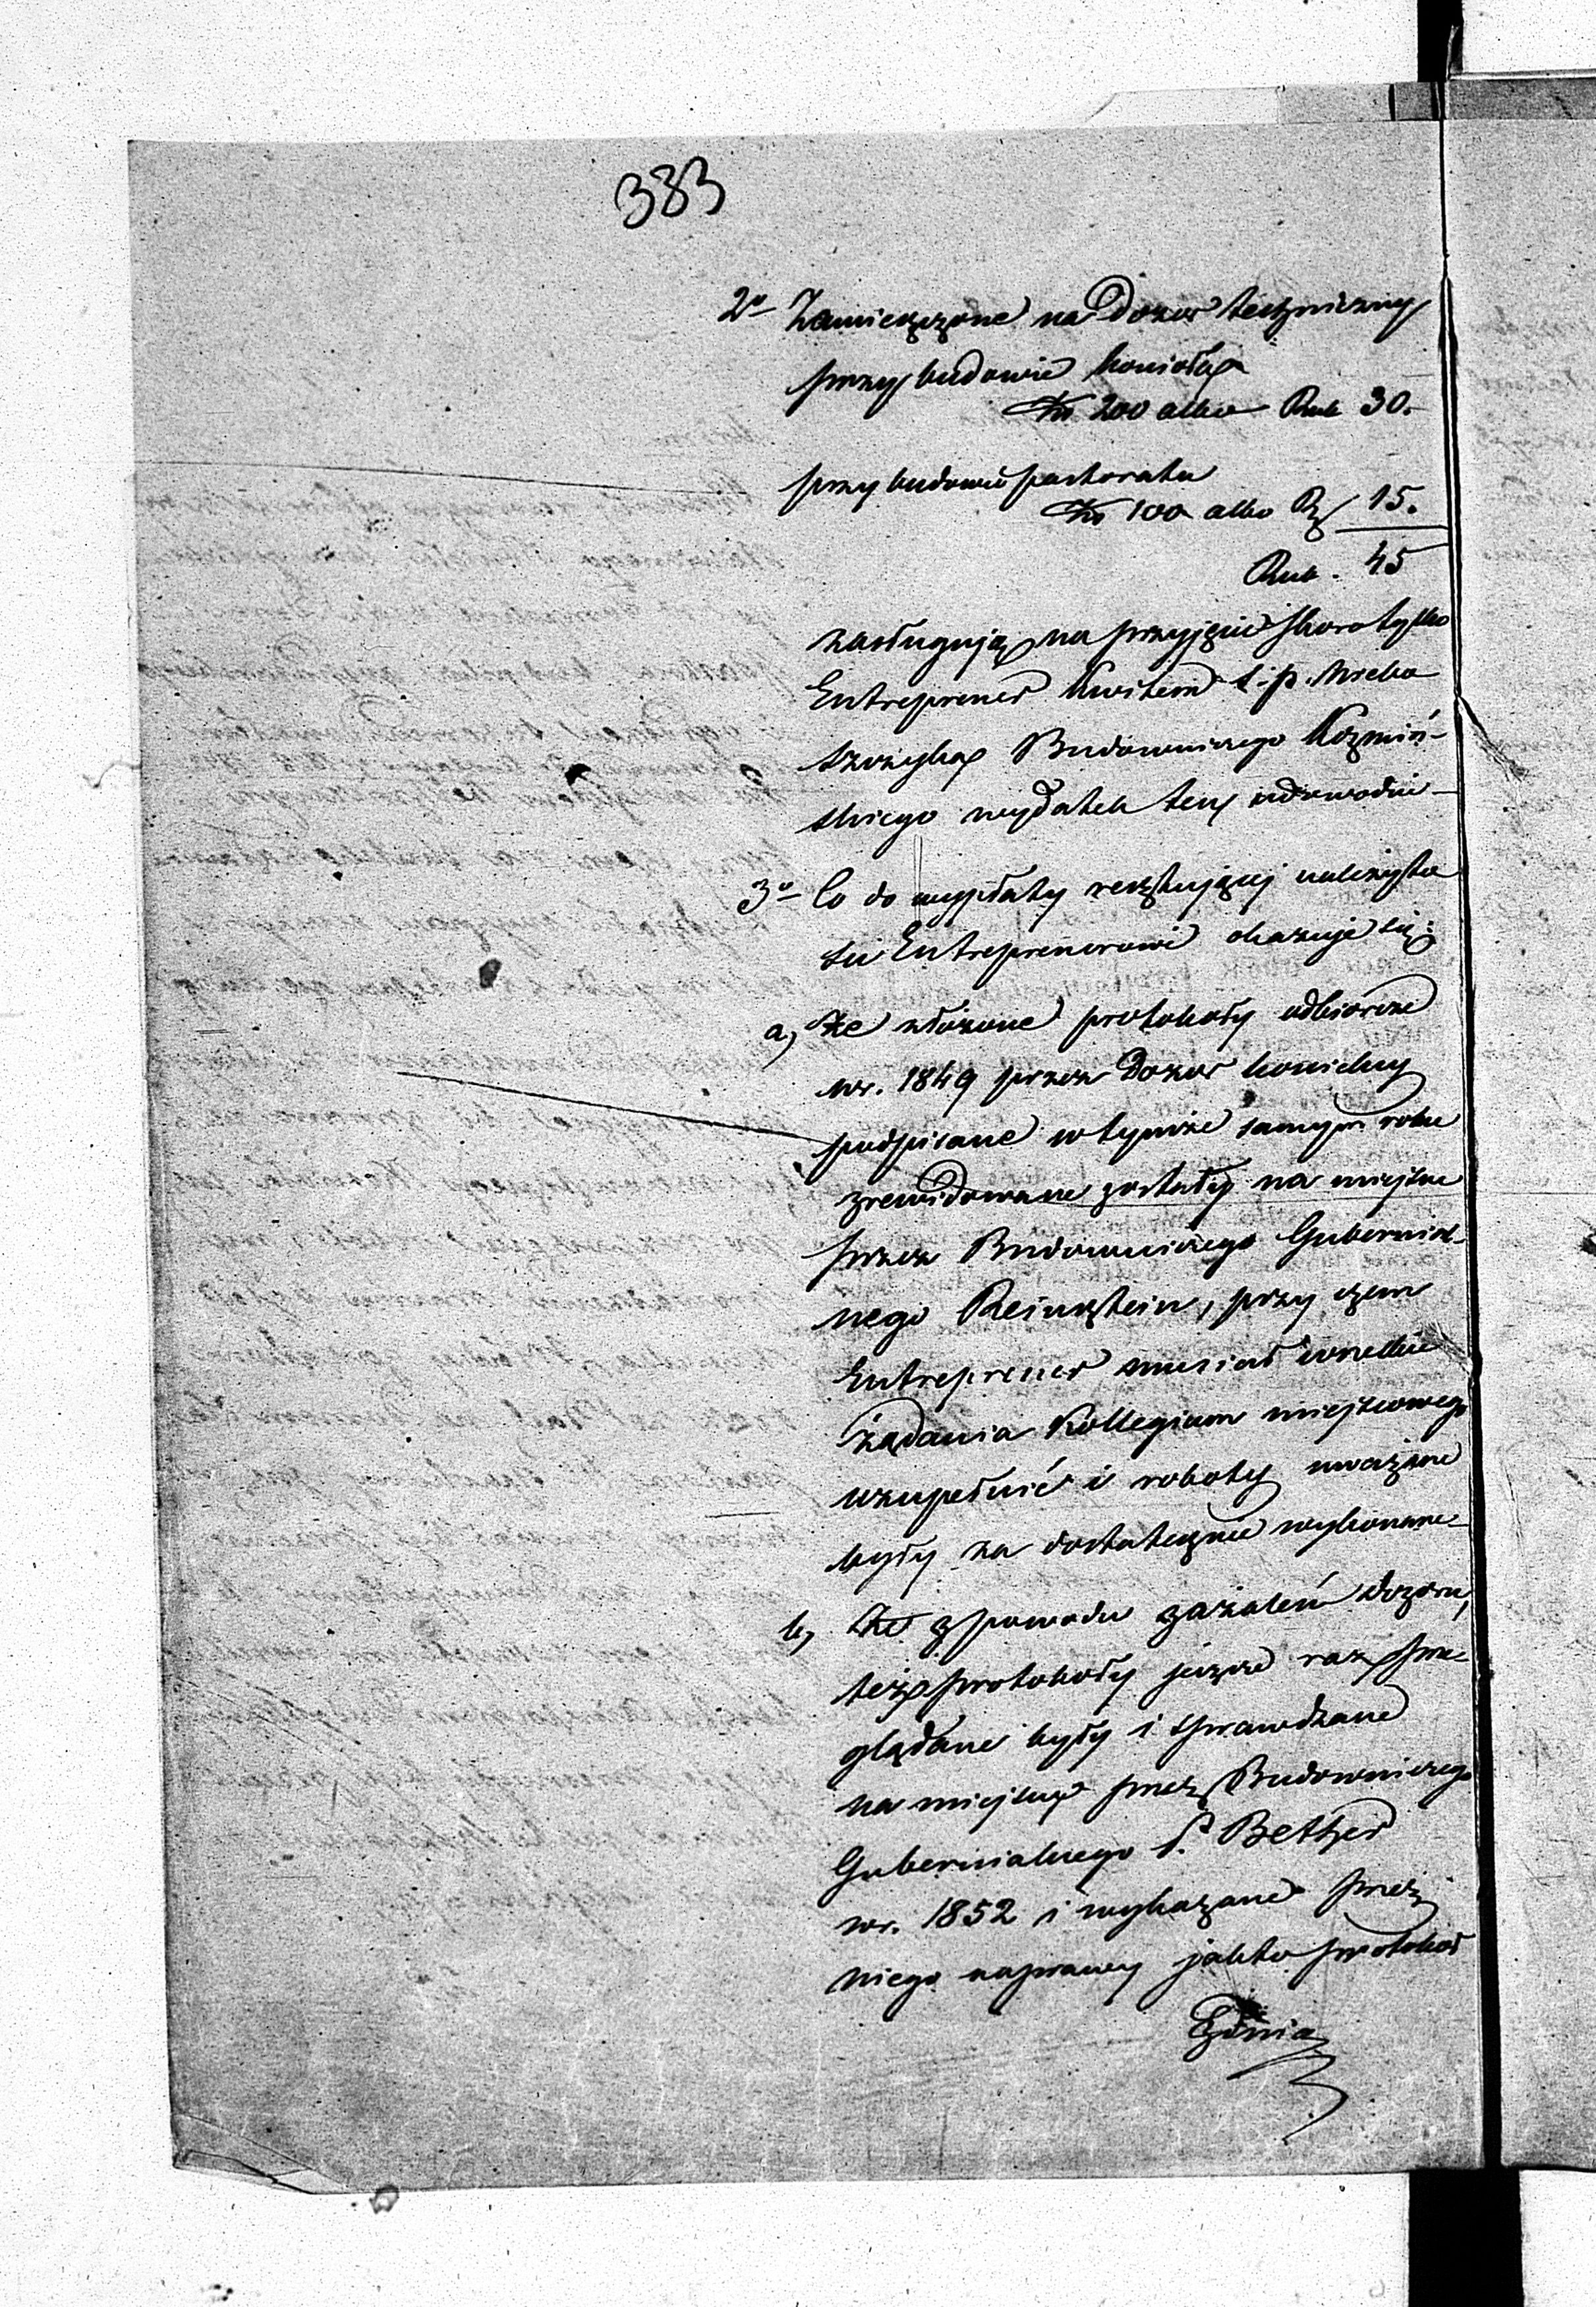 383
2o Zamieszczone na Dozor techniczny
przy budowie kościoła
Złp 200 albo Rub 30.
przy budowie pastoratu
Złp 100 albo Rs 15.
Rub. 45
zasługują na przyjęcie skoro tylko
Entreprener kwitem ś.p.
Budowniczego Koźmiń-
skiego wydatek ten udowodni
3o Co do wypłaty resztującej należyto
ści Entreprenerowi okazuje się:
a, Że złożone protokoły odbiorcze
wr. 1849 przez Dozor kościelny
podpisane w tymże samym roku
zrewidowane zostały na miejscu
przez Budowniczego Gubernial-
nego Reinstein, przy czem
Entreprener musiał wszelkie
żądania Kollegium miejscowego
uzupełnić i roboty uważane
były za dostatecznie wykonane
b, Że z powodu zażaleń Dozoru,
też protokoły jeszcze raz prze-
glądane były i sprawdzane
na miejscu przez Budowniczego
Gubernialnego P. Bether
wr. 1852 i wykazane przez
niego naprawy jak to protokół